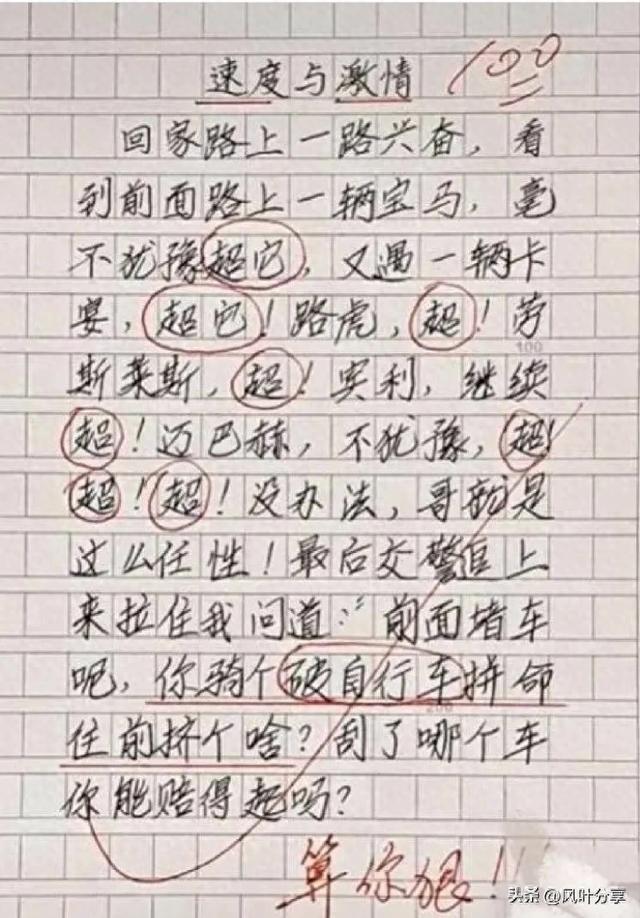 速度与激情
100
回家路上一路兴奋，看
到前面路上一辆宝马，毫
不犹豫超它，又遇一辆卡
宴，超它！路虎，超！劳
100
斯莱斯，超！宾利，继续
超！迈巴赫，不犹豫，超！
超！超！没办法，哥就是
这么任性！最后交警追上
来拉住我问道：“前面堵车
呢，你骑个破自行车拼命
200
往前挤个啥？刮了哪个车
你能赔得起吗？
算你狠！！！
头条 @风叶分享